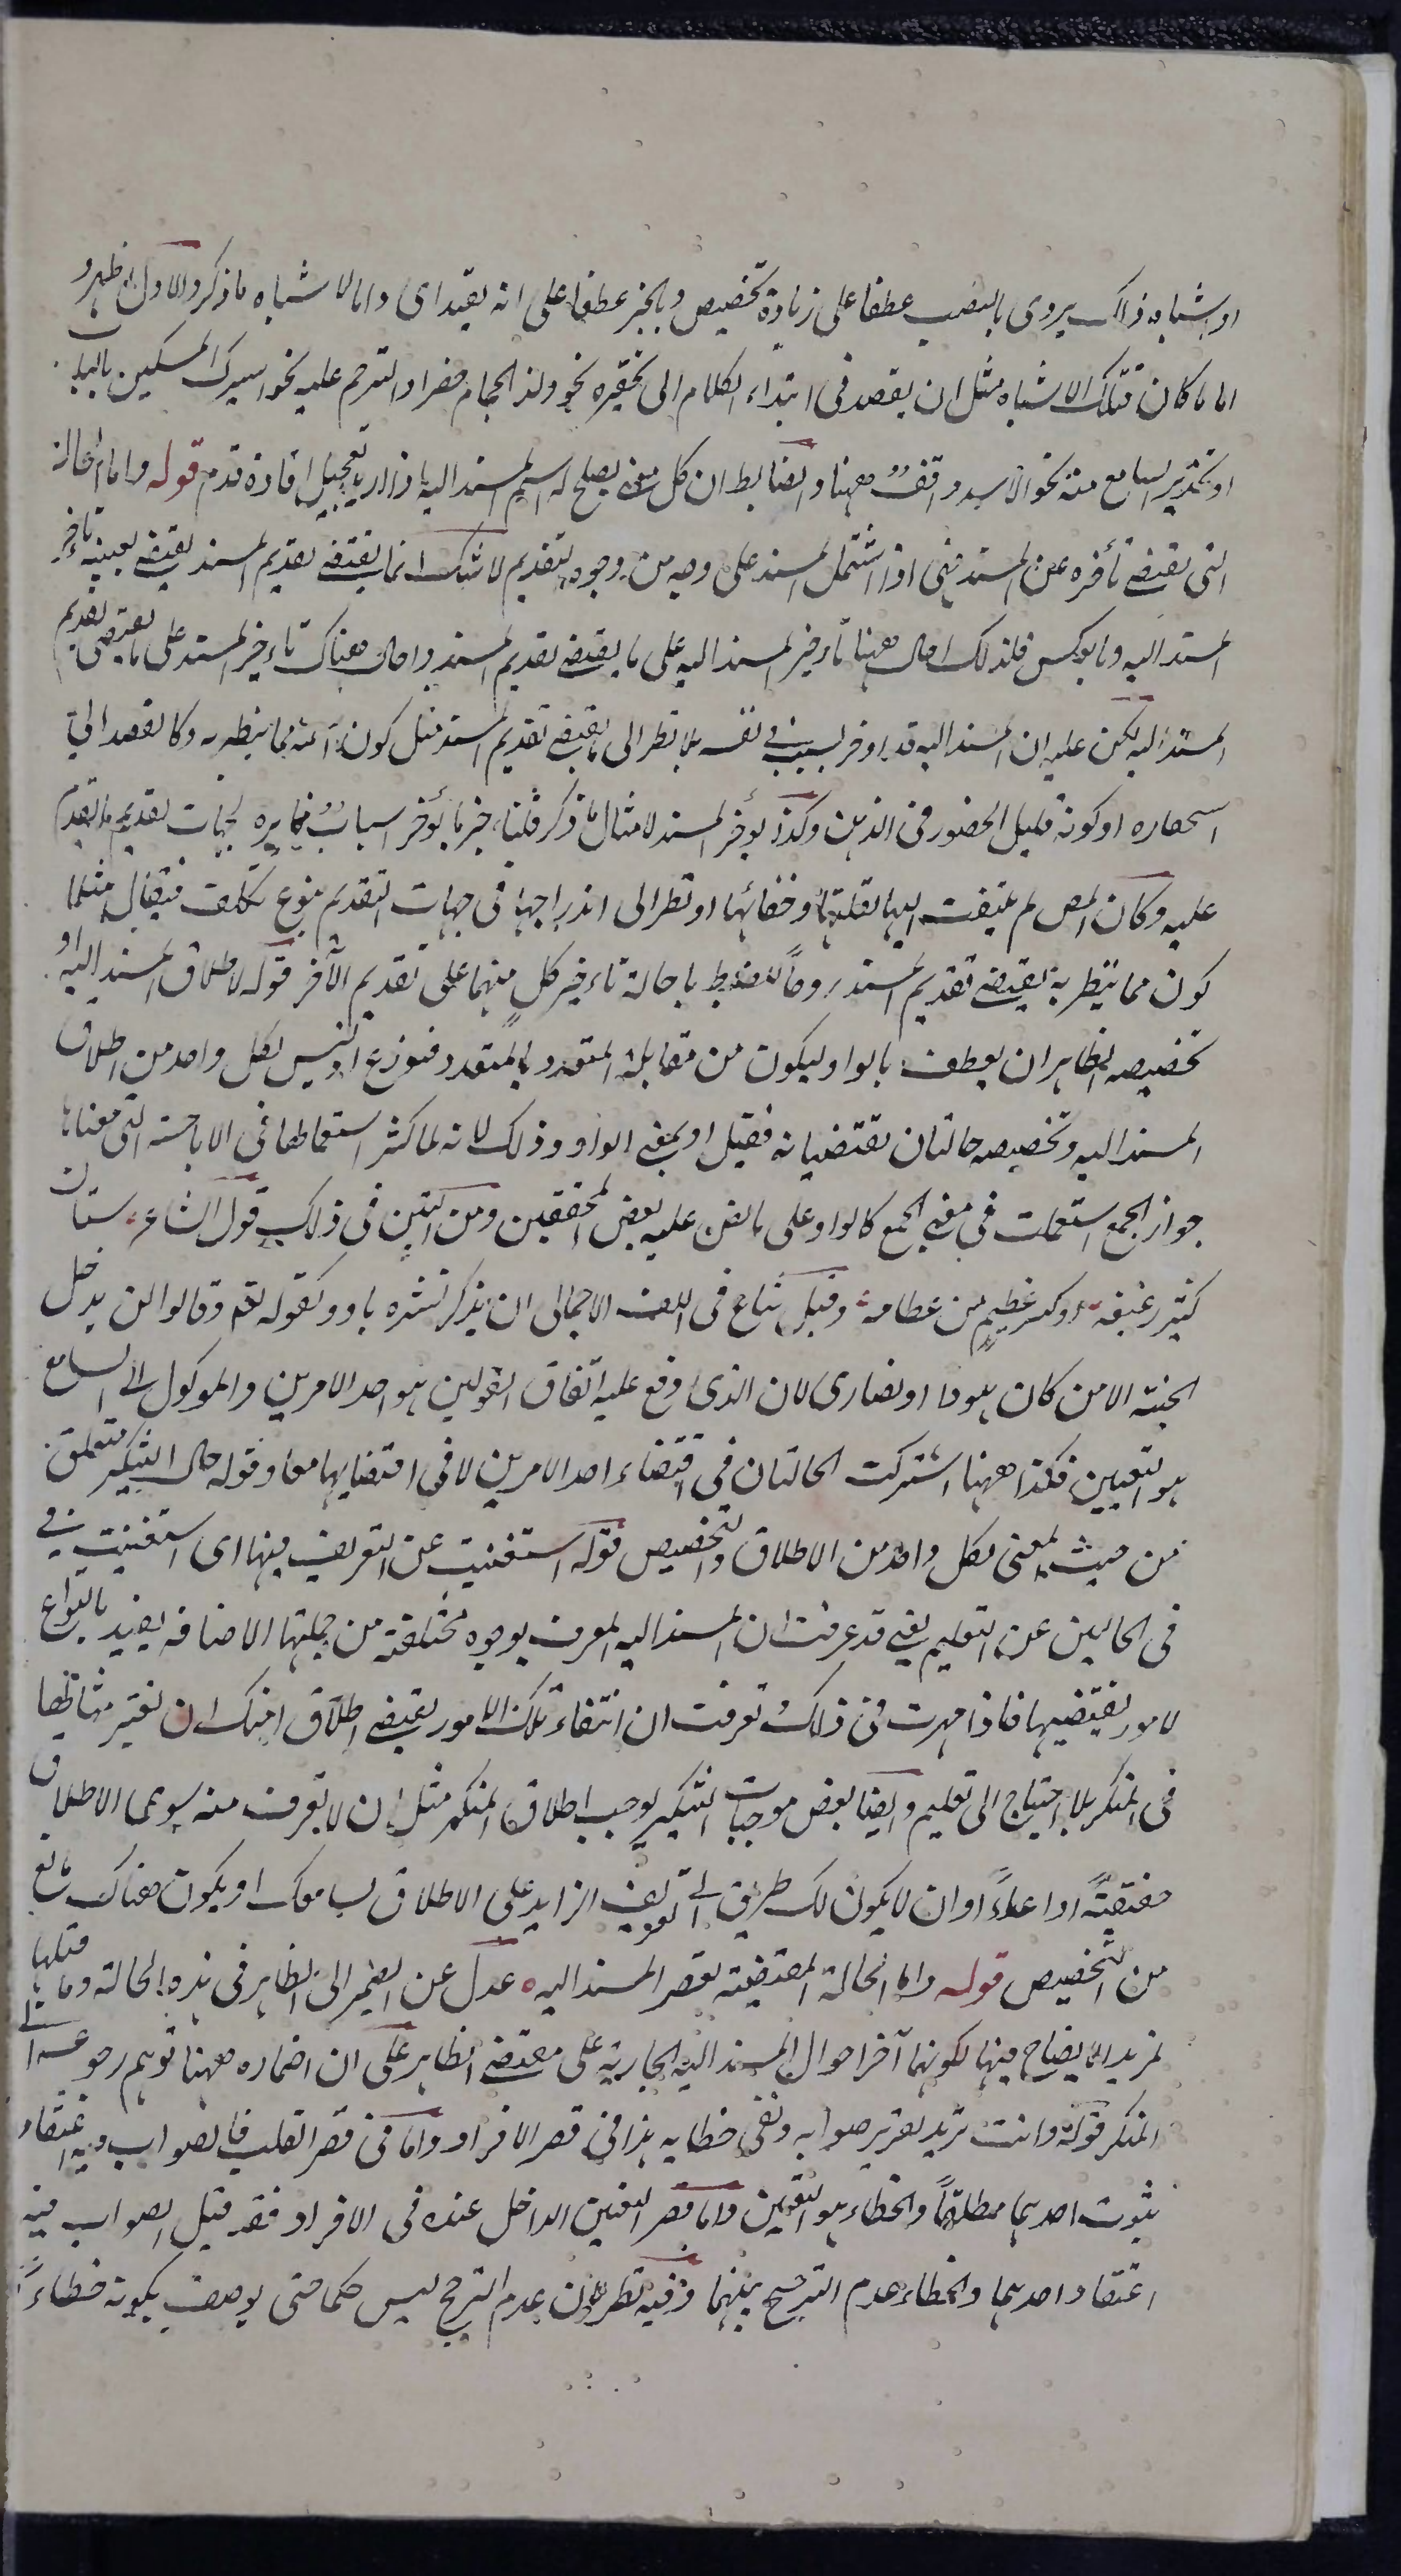 او اشباه ذلك يروى بالنصب عطفا على زيادة تخصيص وبالجر عطفا على انه يفيد اى واما لاشباه ما ذكر والاول اظهر و
اما ما كان فتلك الاشباه مثل ان يقصد فى ابتداء الكلام الى تحقيره نحو ولد الحجام حضر او الترحم عليه نحو اسيرك المسكين بالباب
او تحذير السامع منه نحو الاسد واقف ههنا والضابط ان كل معنى يصلح له اسم المسند اليه اذا اريد تعجيل افادة قدم قوله واما الحالة
التى تقتضى تأخره عن المسند فهى اذا اشتمل المسند على وجه من وجوه التقديم لا شك ان ما يقتضى تقديم المسند يقتضى بعينه تاخير
المسند اليه وبالعكس فلذلك احال ههنا تاءخير المسند اليه على ما يقتضى تقديم المسند واحال هناك تاءخير المسند على ما يقتضى تقديم
المسند اليه لكن عليه ان المسند اليه قد يؤخر لسبب فى نفسه بلا نظر الى ما يقتضى تقديم المسند مثل كون المسند اليه مما يتطير به وكالقصد الى
استحضاره او كونه قليل الحضور فى الذهن وكذا يؤخر المسند لامثال ما ذكر فلتاخير ما يؤخر اسباب مغايرة لجهات تقديم ما تقدم
عليه وكان المص لم يلتفت اليها لقلتها وخفائها او نظر الى اندراجها فى جهات التقديم بنوع تكلف فيقال مثلا
كون مما يتطير به يقتضى تقديم المسند روما للضبط باحالة تاءخير كل منهما على تقديم الآخر قوله لاطلاق المسند اليه او
تخصيصه الظاهر ان يعطف بالواو ليكون من مقابلة المتعدد بالمتعدد فتوزع اذ ليس لكل واحد من اطلاق
المسند اليه وتخصيصه حالتان تقتضيانه فقيل او بمعنى الواو وذلك لانه لما كثر استعمالها فى الاباحة التى معناها
جواز الجمع استعملت فى معنى الجمع كالواو على ما نص عليه بعض المحققين ومن البين فى ذلك قول الشاعر سيان
كثير رغيفه او كسر عظيم من عظامه وقيل شاع فى اللف الاجمالى ان يذكر نشره باو كقوله تعم وقالوا لن يدخل
الجنة الا من كان هودا او نصارى لان الذى وقع عليه اتفاق القولين هو احد الامرين والموكول الى السامع
هو التعيين فكذا ههنا اشتركت الحالتان فى اقتضاء احد الامرين لا فى اقتضايهما معا وقوله حال التنكير متعلق
من حيث المعنى بكل واحد من الاطلاق والتخصيص قوله استغنيت عن التعريف فيها اى استغنيت فى
فى الحالين عن التعليم يعنى قد عرفت ان المسند اليه المعرف بوجوه مختلفة من جملتها الاضافة يفيد بانواع
لامور يقتضيها فاذا مهرت فى ذلك وعرفت ان انتفاء تلك الامور يقتضى اطلاق امكنك ان تعتبر مثالها
فى المنكر بلا احتياج الى تعليم وايضا بعض موجبات التنكير يوجب اطلاق المنكر مثل ان لا تعرف منه سوى الاطلاق
حقيقة او ادعاءً او ان لا يكون لك طريق الى التعريف الزايد على الاطلاق لسامعك او يكون هناك مانع
من التخصيص قوله واما الحالة المقتضية لقصر المسند اليه عدل عن الضمير الى الظاهر فى هذه الحالة وما قبلها
لمزيد الايضاح فيها لكونهما آخر احوال المسند اليه الجارية على مقتضى الظاهر على ان اضماره ههنا توهم رجوعه الى
المنكر قوله وانت تريد تقرير صوابه ونفى خطايه هذا فى قصر الافراد واما فى قصر القلب فالصواب فيه اعتقاد
ثبوت احدهما مطلقاً والخطاء هو التعيين واما قصر التعيين الداخل عنده فى الافراد فقد قيل الصواب فيه
اعتقاد احدهما والخطاء عدم الترجيح بينهما وفيه نظر لان عدم الترجيح ليس حكما حتى يوصف بكونه خطاءً